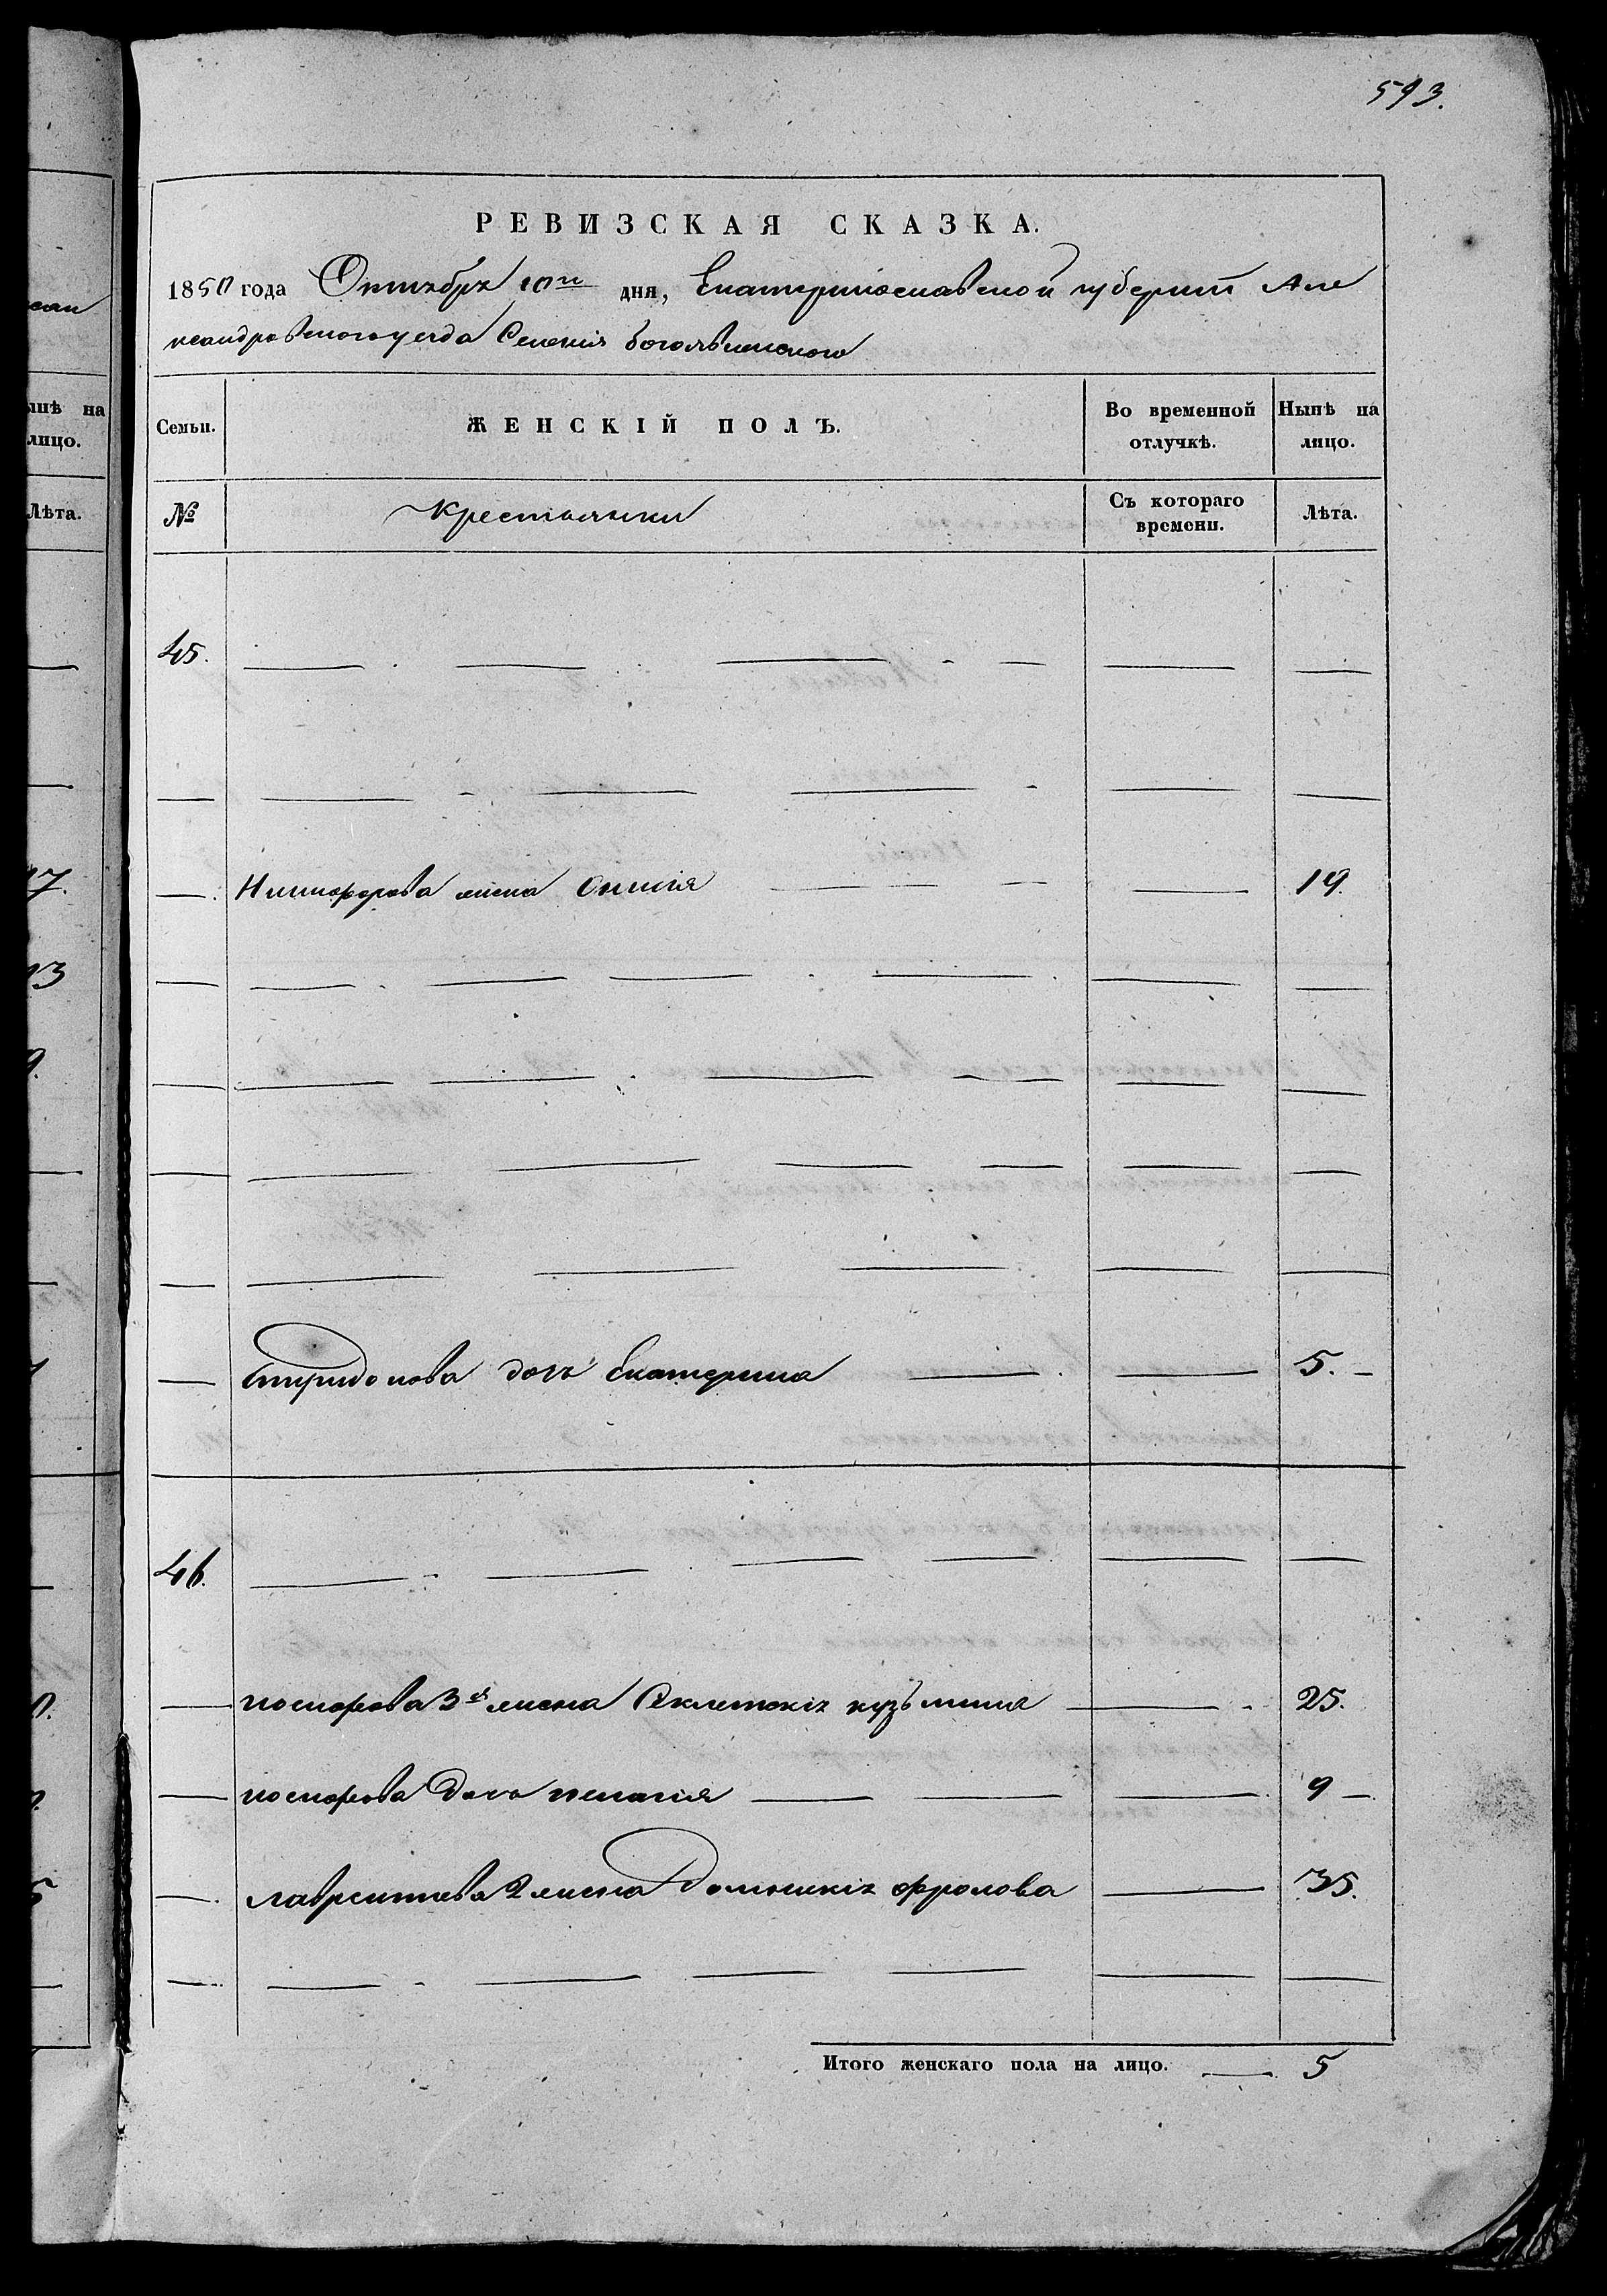 593.
РЕВИЗСКАЯ СКАЗКА.
1850 года Октября 10го дня, Екатеринославской губернии Але
ксандровского уезда Селения богоявленского
Семьи. ЖЕНСКІЙ ПОЛЪ. Во временной отлучкѣ. Нынѣ на лицо.
№ Крестьянки Съ котораго времени. Лѣта.
45.
Никифорова жена 19.
Спиридонова дочь Екатерина 5.
46.
25.
дочь пелагия 9
лаврентиева 2 жена Домникия фролова 35.
Итого женскаго пола на лицо. 5
ынѣ на
лицо.
Лѣта.